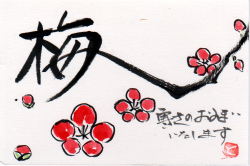 梅
寒さのお見まい
いたします